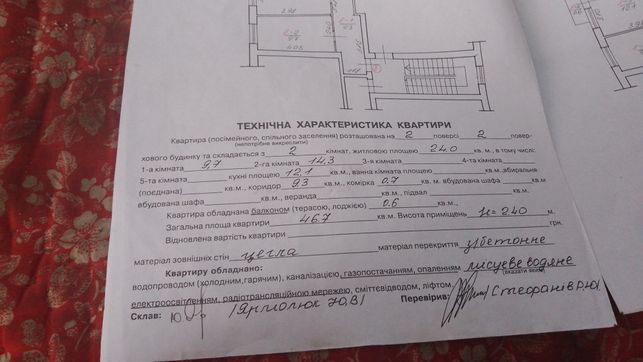 398
409
ТЕХНІЧНА ХАРАКТЕРИСТИКА КВАРТИРИ
Квартира (посімейного, спільного заселення) розташована на 2 поверсі 2 повер-
(непотрібне викреслити)
хового будинку та складається з 2 кімнат, житловою площею 24.0 кв. м., в тому числі:
1-а кімната 9,7 2-га кімната 14,3 3-я кімната 4-та кімната
5-та кімната кухні площею 12,1 кв.м., ванна кімната кв.м., вбиральня
(поєднана) кв.м., коридор 9.3 кв.м., комірка 0.7 кв. м. вбудована шафа кв.м
вбудована шафа кв.м., веранда кв.м., підвал кв.м.
Квартира обладнана балконом (терасою, лоджією) 0.6 кв.м.,
Загальна площа квартири 46.7 кв.м. Висота приміщень н=2.40 м.
Відновлена вартість квартири грн.
матеріал зовнішніх стін цегла матеріал перекриття з/бетонне
Квартиру обладнано: (вказати яким)
водопроводом (холодним,гарячим), каналізацією, газопостачанням, опаленням місцеве водяне
електроосвітленням, радіотрансляційною мережею, сміттєвідводом, ліфтом.
Склав: Перевірив: